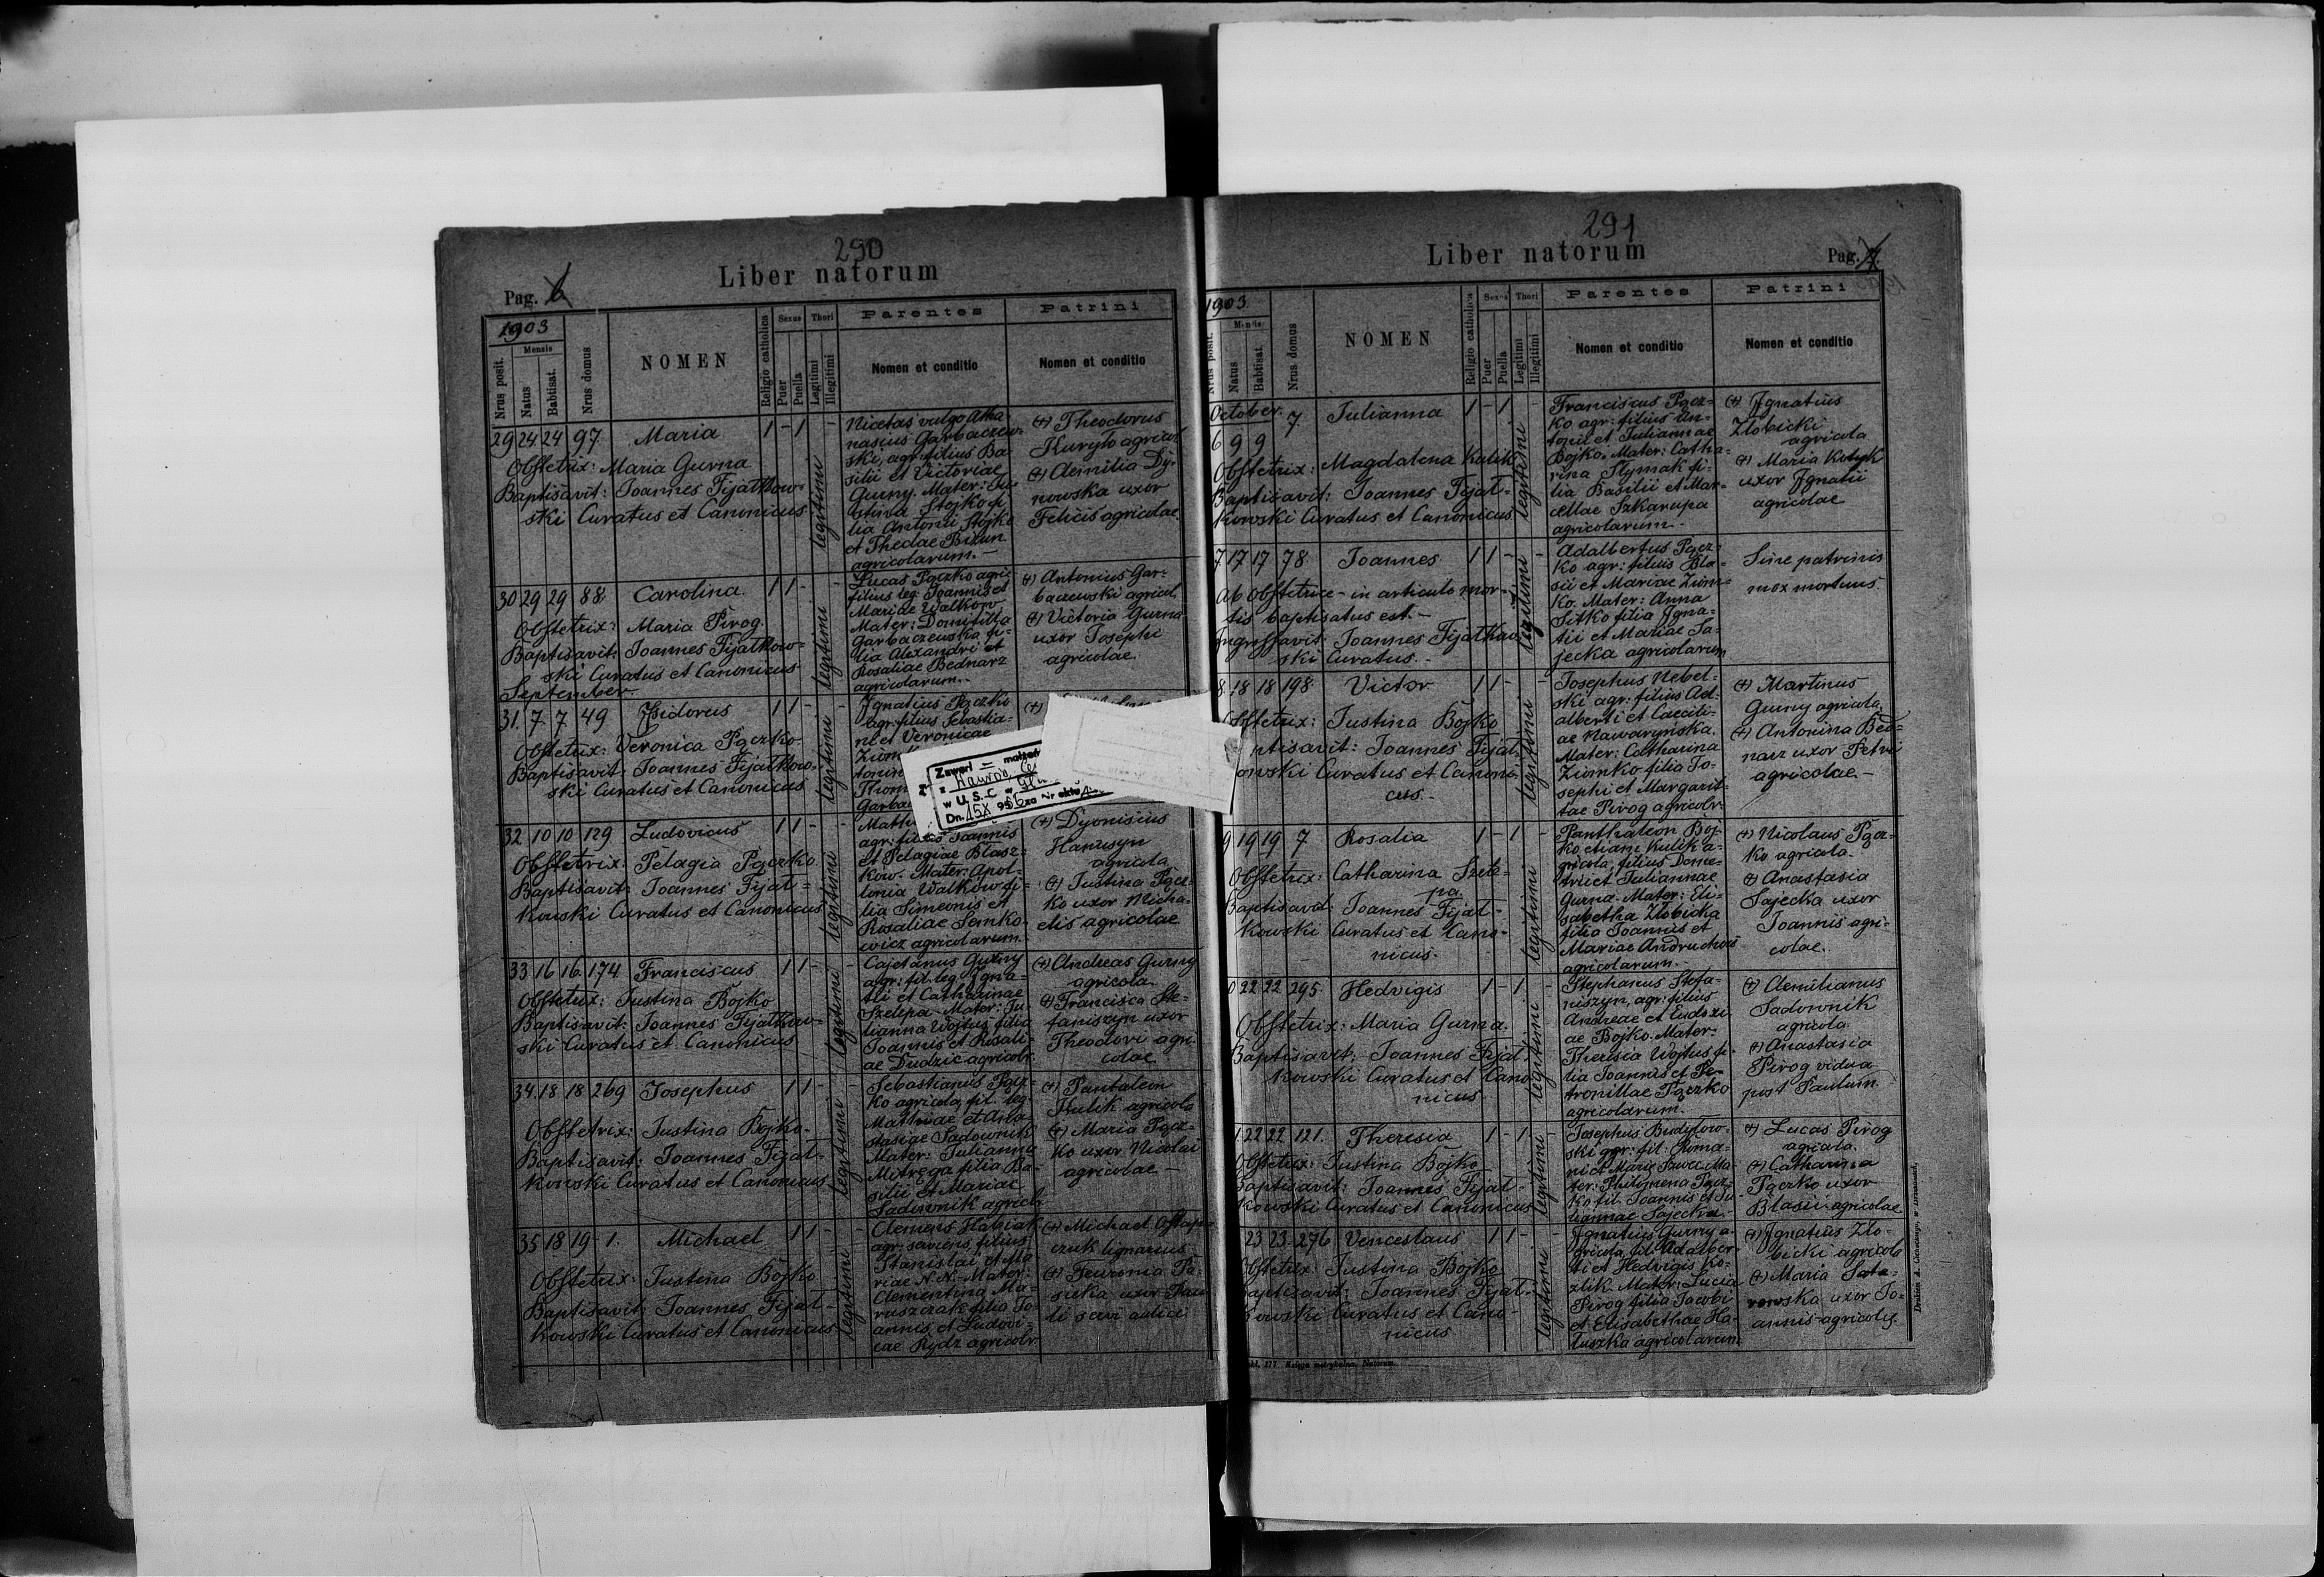 290
Liber natorum
Pag. 6
1903
Nrus posit.
Mensis
Natus
Babtisat.
Nrus domus
NOMEN
Religio catholica
Sexus
Puer
Puella
Thori
Legitimi
Illegitimi
Parentes
Nomen et conditio
Patrini
Nomen et conditio
29 24 24 97 Maria 1 - 1 -
Obstetrix: Maria Gurna
Baptisavit: Joannes Fijałkow=
ski Curatus et Canonicus
legitimi
Nicetas vulgo Atha-
nasius Garbaczew-
ski, agr. filius Ba-
silii et Victoriae
Gurny. Mater: Ju-
stina Stojko fi-
lia Antonii Stojko
et Theclae Bizun
agricolarum.-
(+) Theodorus
Kuryło agricol.
(+) Aemilia Dy-
nowska uxor
Felicis agricolae.
30 29 29 88 Carolina 1 1 - -
Obstetrix: Maria Pirog.
Baptisavit: Joannes Fijałkow=
ski Curatus et Canonicus
legitimi
Lucas Pączko agric.
filius leg. Joannis et
Mariae Walków
Mater: Domitilla
Garbaczewska fi-
lia Alexandri et
Rosaliae Bednarz
agricolarum.-
(+) Antonius Gar-
baczewski agricol.
(+) Victoria Gurna
uxor Josephi
agricolae.
September.
31. 7 7 49 Isidorus 1 1 - -
Obstetrix: Veronica Pączko.
Baptisavit: Joannes Fijałkow=
ski Curatus et Canonicus
legitimi
Ignatius Pączko
agr. filius Sebastia-
ni et Veronicae
(+)
Zawarł małżeń
w U.S.C. w
Dn. 15X 956 za Nr aktu
32 10 10 129 Ludovicus 1 1 - -
Obstetrix: Pelagia Pączko
Baptisavit: Joannes Fijał=
kowski Curatus et Canonicus
legitimi
agr: filius Joannis
et Pelagiae Błasz-
ków. Mater: Apol-
lonia Walków fi-
lia Simeonis et
Rosaliae Semko-
wicz agricolarum.
(+) Dyonisius
Hanusyn
agricola
(+) Justina Pącz-
ko uxor Micha-
elis agricolae
33 16 16 174 Franciscus 1 1 - -
Obstetrix: Justina Bojko
Baptisavit: Joannes Fijałkow=
ski Curatus et Canonicus
legitimi
Cajetanus Gurny
agr: fil. leg. Igna-
tii et Catharinae
Szelepa Mater: Ju-
lianna Wojtus filia
Joannis et Rosali-
ae Dudzic agricolr.
(+) Andreas Gurny
agricola.
(+) Francisca Ste-
faniszyn uxor
Theodori agri-
colae
34. 18 18 269 Josephus 1 1 - -
Obstetrix: Justina Bojko.
Baptisavit: Joannes Fijał-
kowski Curatus et Canonicus
legitimi
Sebastianus Pącz-
ko agricola, fil. leg.
Mathiae et Ana-
stasiae Sadownik
Mater: Julianna
Mitręga filia Ba-
silii et Mariae
Sadownik agricolr.
(+) Pantaleon
Kulik agricola
(+) Maria Pącz-
ko uxor Nicolai
agricolae -
35 18 19 1. Michael 1 1 - -
Obstetrix: Justina Bojko
Baptisavit: Joannes Fijał-
kowski Curatus et Canonicus
legitimi
Clemens Habiak
agr: filius
Stanislai et Ma-
riae N.N. Mater:
Clementina Ma-
ruszczak filia Jo-
annis et Ludovi-
cae Rydz agricolr.
(+) Michael Ostap-
czuk lignarius
(+) Feuronia Pa-
sicka uxor Pau-
li servi aulici
291
Liber natorum
Pag. 7.
1903
Nrus posit.
Mensis
Natus
Babtisat.
Nrus domus
NOMEN
Religio catholica
Sexus
Puer
Puella
Thori
Legitimi
Illegitimi
Parentes
Nomen et conditio
Patrini
Nomen et conditio
October.
6 9 9 7 Julianna 1 - 1 -
Obstetrix: Magdalena Kulik
Baptisavit: Joannes Fijał=
kowski Curatus et Canonicus
legitimi
Franciscus Pącz-
ko agr: filius An-
tonii et Juliannae
Bojko. Mater: Catha-
rina Slymak fi-
lia Basilii et Mar-
cellae Szkarupa
agricolarum.-
(+) Ignatius
Złobicki
agricola
(+) Maria Kotyk
uxor Ignatii
agricolae
7 17 17 78 Joannes 1 1 - -
Ab obstetrice - in articulo mor-
tis baptisatus est.-
Ingressavit: Joannes Fijałkow-
ski Curatus.-
legitimi
Adalbertus Pącz-
ko agr: filius Bla-
sii et Mariae Ziom-
ko. Mater: Anna
Sitko filia Igna-
tii et Mariae Sa-
jecka agricolarum
Sine patrinis
mox mortuus.
8 18 18 198 Victor 1 1 - -
Obstetrix: Justina Bojko
ptisavit: Joannes Fijał
owski Curatus et Canoni-
cus.-
legitimi
Josephus Nebel-
ski agr: filius Ad-
alberti et Caecili-
ae Nawaryńska.
Mater: Catharina
Ziomko filia Jo-
sephi et Margarit-
tae Pirog agricolr.
(+) Martinus
Gurny agricola,
(+) Antonina Bed-
narz uxor Petri
agricolae.-
9 19 19 7 Rosalia 1 - 1 -
Obstetrix: Catharina Szele-
pa
Baptisavit: Joannes Fijał-
kowski Curatus et Cano-
nicus.
legitimi
Panthaleon Boj-
ko, etiam Kulik a-
gricola, filius Deme-
trii et Juliannae
Gurna. Mater: Eli-
sabetha Złobicka
filia Joannis et
Mariae Andruchów
agricolarum.-
(+) Nicolaus Pącz-
ko agricola.
(+) Anastasia
Sajecka uxor
Joannis agri-
colae.
0 22 22 295 Hedvigis 1 - 1 -
Obstetrix: Maria Gurna.
Baptisavit: Joannes Fijał
kowski Curatus et Cano-
nicus
legitimi
Stephanus Stefa-
niszyn, agr: filius
Andreae et Eudoxi-
ae Bojko. Mater:
Theresia Wojtus fi-
lia Joannis et Pe-
tronillae Pączko
agricolarum.
(+) Aemilianus
Sadownik
agricola.
(+) Anastasia
Pirog vidua
post Paulum.
1 22 22 121. Theresia 1 - 1 -
Obstetrix: Justina Bojko
Baptisavit: Joannes Fijał-
kowski Curatus et Canonicus
legitimi
Josephus Budyłow-
ski agr: fil. Roma-
ni et Mariae Szwec. Ma-
ter: Philomena Pącz-
ko fil. Joannis et Ju-
liannae Sajecka.-
(+) Lucas Pirog
agricola.
(+) Catharina
Pączko uxor
Blasii agricolae
23 23 276 Venceslaus 1 1 - -
Obstetrix: Justina Bojko
Baptisavit: Joannes Fijał-
kowski Curatus et Cano-
nicus
legitimi
Ignatius Gurny a-
gricola, fil. Adalber-
ti et Hedvigis Ko-
zlik. Mater: Lucia
Pirog filia Jacobi
et Elisabethae Ha-
łuszka agricolarum
(+) Ignatius Zło-
bicki agricola
(+) Maria
uxor Jo-
annis agricolę.
177. Księga metrykalna. Natorum.